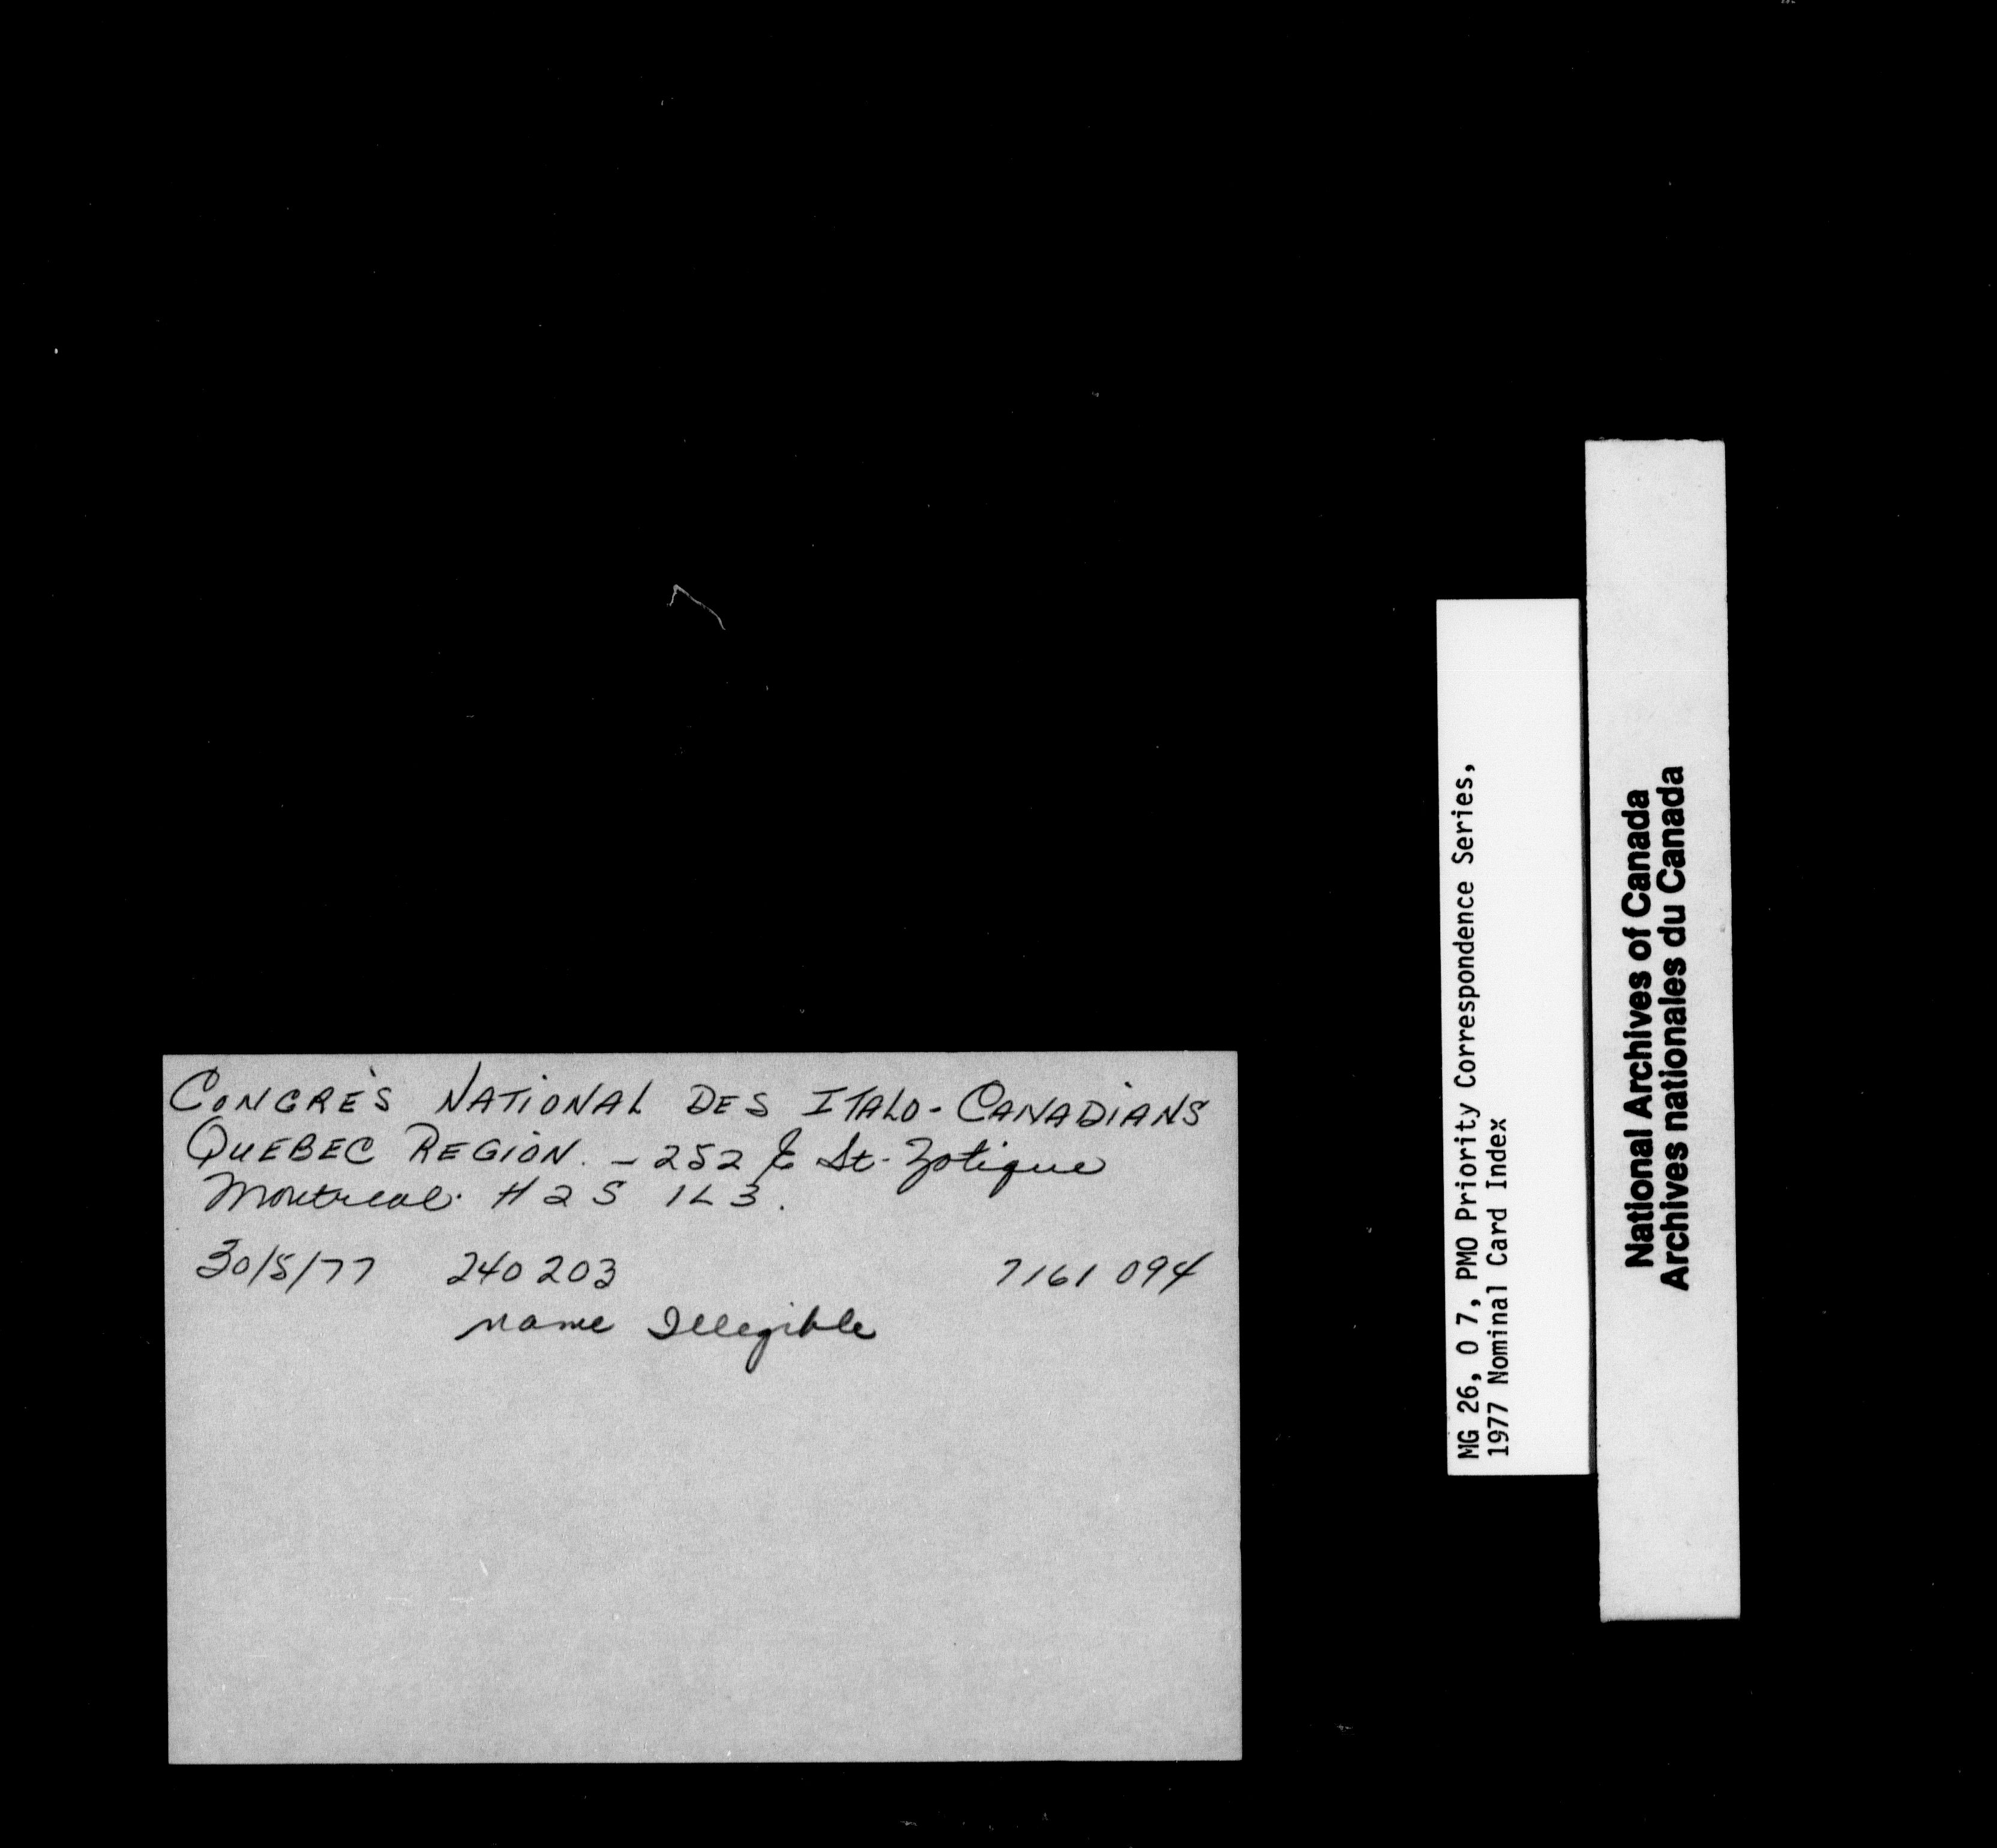 CONGRÈS NATIONAL DES ITALO-CANADIANS
QUEBEC REGION. - 252 E St-Zotique
Montreal. H2S 1L3.
30/5/77 240203 7161 094
name Illegible
MG 26, O 7, PMO Priority Correspondence Series,
1977 Nominal Card Index
National Archives of Canada
Archives nationales du Canada